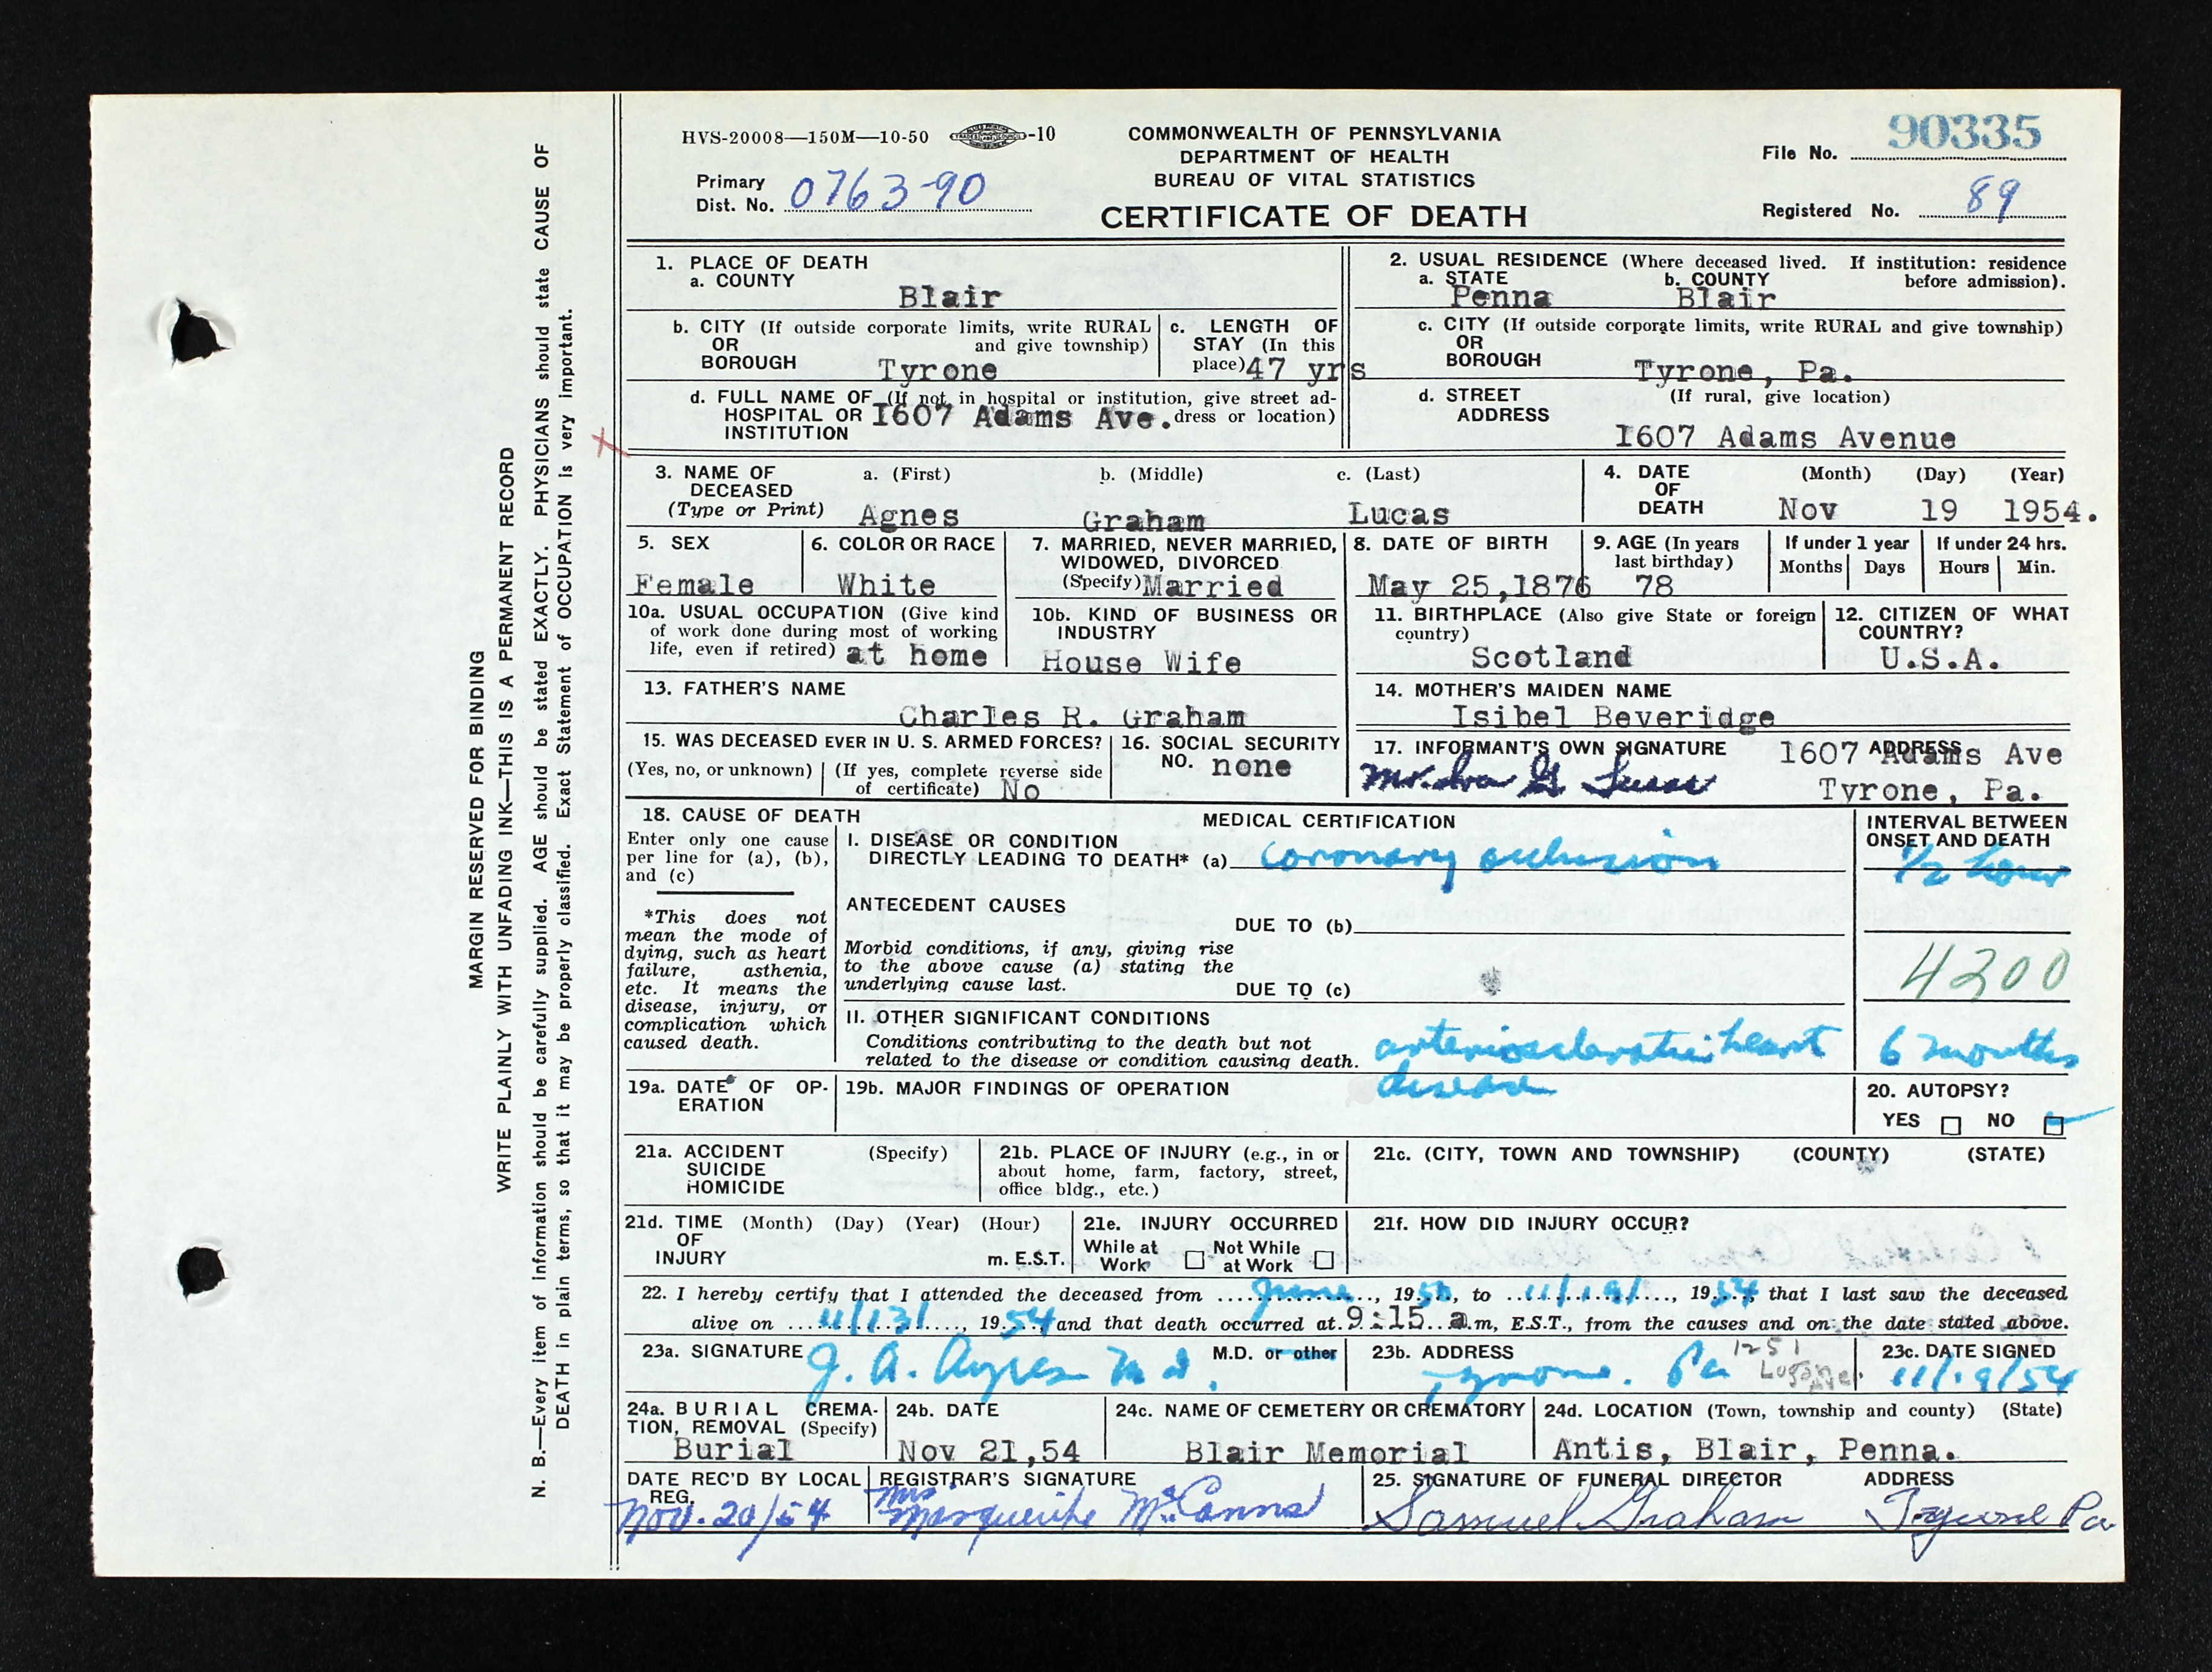 HVS-20008—150M—10-50 -10
COMMONWEALTH OF PENNSYLVANIA
DEPARTMENT OF HEALTH
BUREAU OF VITAL STATISTICS
CERTIFICATE OF DEATH
File No. 90335
Primary Dist. No. 0763-90
Registered No. 89
MARGIN RESERVED FOR BINDING
WRITE PLAINLY WITH UNFADING INK—THIS IS A PERMANENT RECORD
N. B.—Every item of information should be carefully supplied. AGE should be stated EXACTLY. PHYSICIANS should state CAUSE OF
DEATH in plain terms, so that it may be properly classified. Exact Statement of OCCUPATION is very important.
1. PLACE OF DEATH
a. COUNTY
Blair
2. USUAL RESIDENCE (Where deceased lived. If institution: residence before admission).
a. STATE Penna b. COUNTY Blair
b. CITY (If outside corporate limits, write RURAL and give township)
OR
BOROUGH Tyrone
c. LENGTH OF STAY (In this place) 47 yrs
c. CITY (If outside corporate limits, write RURAL and give township)
OR
BOROUGH Tyrone, Pa.
d. FULL NAME OF (If not in hospital or institution, give street address or location)
HOSPITAL OR INSTITUTION 1607 Adams Ave.
d. STREET ADDRESS (If rural, give location)
1607 Adams Avenue
3. NAME OF DECEASED (Type or Print)
a. (First) b. (Middle) c. (Last)
Agnes Graham Lucas
4. DATE OF DEATH (Month) (Day) (Year)
Nov 19 1954.
5. SEX
Female
6. COLOR OR RACE
White
7. MARRIED, NEVER MARRIED, WIDOWED, DIVORCED (Specify) Married
8. DATE OF BIRTH
May 25,1876
9. AGE (In years last birthday) 78
If under 1 year Months Days
If under 24 hrs. Hours Min.
10a. USUAL OCCUPATION (Give kind of work done during most of working life, even if retired) at home
10b. KIND OF BUSINESS OR INDUSTRY
House Wife
11. BIRTHPLACE (Also give State or foreign country)
Scotland
12. CITIZEN OF WHAT COUNTRY?
U.S.A.
13. FATHER'S NAME
Charles R. Graham
14. MOTHER'S MAIDEN NAME
Isibel Beveridge
15. WAS DECEASED EVER IN U. S. ARMED FORCES?
(Yes, no, or unknown) (If yes, complete reverse side of certificate) No
16. SOCIAL SECURITY NO. none
17. INFORMANT'S OWN SIGNATURE ADDRESS
Mr. Ira G. Lucas
1607 Adams Ave
Tyrone, Pa.
18. CAUSE OF DEATH
Enter only one cause per line for (a), (b), and (c)
*This does not mean the mode of dying, such as heart failure, asthenia, etc. It means the disease, injury, or complication which caused death.
MEDICAL CERTIFICATION
INTERVAL BETWEEN ONSET AND DEATH
I. DISEASE OR CONDITION
DIRECTLY LEADING TO DEATH* (a) coronary occlusion
1/2 hour
ANTECEDENT CAUSES
DUE TO (b)
Morbid conditions, if any, giving rise to the above cause (a) stating the underlying cause last.
DUE TO (c)
4200
II. OTHER SIGNIFICANT CONDITIONS
Conditions contributing to the death but not related to the disease or condition causing death.
arteriosclerotic heart
disease
6 months
19a. DATE OF OPERATION
19b. MAJOR FINDINGS OF OPERATION
20. AUTOPSY?
YES NO
21a. ACCIDENT SUICIDE HOMICIDE (Specify)
21b. PLACE OF INJURY (e.g., in or about home, farm, factory, street, office bldg., etc.)
21c. (CITY, TOWN AND TOWNSHIP) (COUNTY) (STATE)
21d. TIME OF INJURY (Month) (Day) (Year) (Hour) m. E.S.T.
21e. INJURY OCCURRED
While at Work Not While at Work
21f. HOW DID INJURY OCCUR?
22. I hereby certify that I attended the deceased from June, 1950, to 11/19/, 1954 that I last saw the deceased
alive on 11/13/, 1954 and that death occurred at 9:15 a.m, E.S.T., from the causes and on the date stated above.
23a. SIGNATURE J. A. Ayres M.D. M.D. or other
23b. ADDRESS Tyrone. Pa 1251 Logan Ave.
23c. DATE SIGNED
11/19/54
24a. BURIAL CREMATION, REMOVAL (Specify)
Burial
24b. DATE
Nov 21,54
24c. NAME OF CEMETERY OR CREMATORY
Blair Memorial
24d. LOCATION (Town, township and county) (State)
Antis, Blair, Penna.
DATE REC'D BY LOCAL REG.
Nov. 20/54
REGISTRAR'S SIGNATURE
Mrs. Marguerite McCanna
25. SIGNATURE OF FUNERAL DIRECTOR ADDRESS
Samuel Graham Tyrone Pa